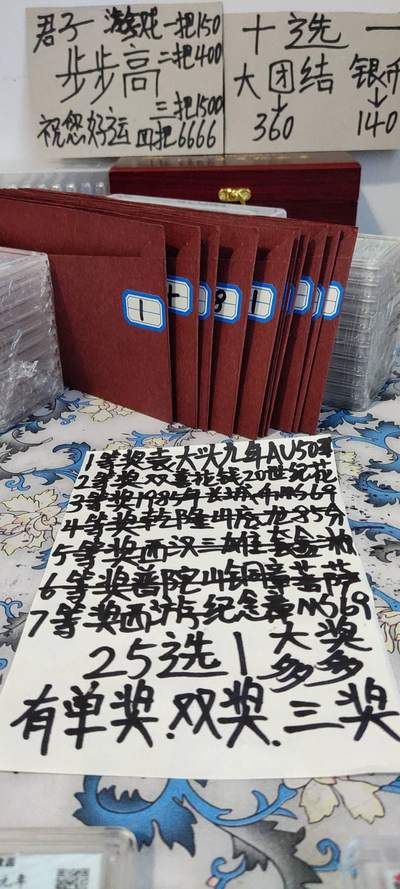 君子 游戏 一把150
步步高 二把400
三把1500
祝您好运 四把6666
十选一
大团结 银币
360 140
1
1等奖袁大头九年AU50
2等奖双喜花钱20世纪花
3等奖1985年长城币MS69
4等奖乾隆山底龙85分
5等奖西汉三雄套
6等奖普陀山铜章菩萨
7等奖西游纪念章MS69
25选1 大奖多多
有单奖.双奖.三奖